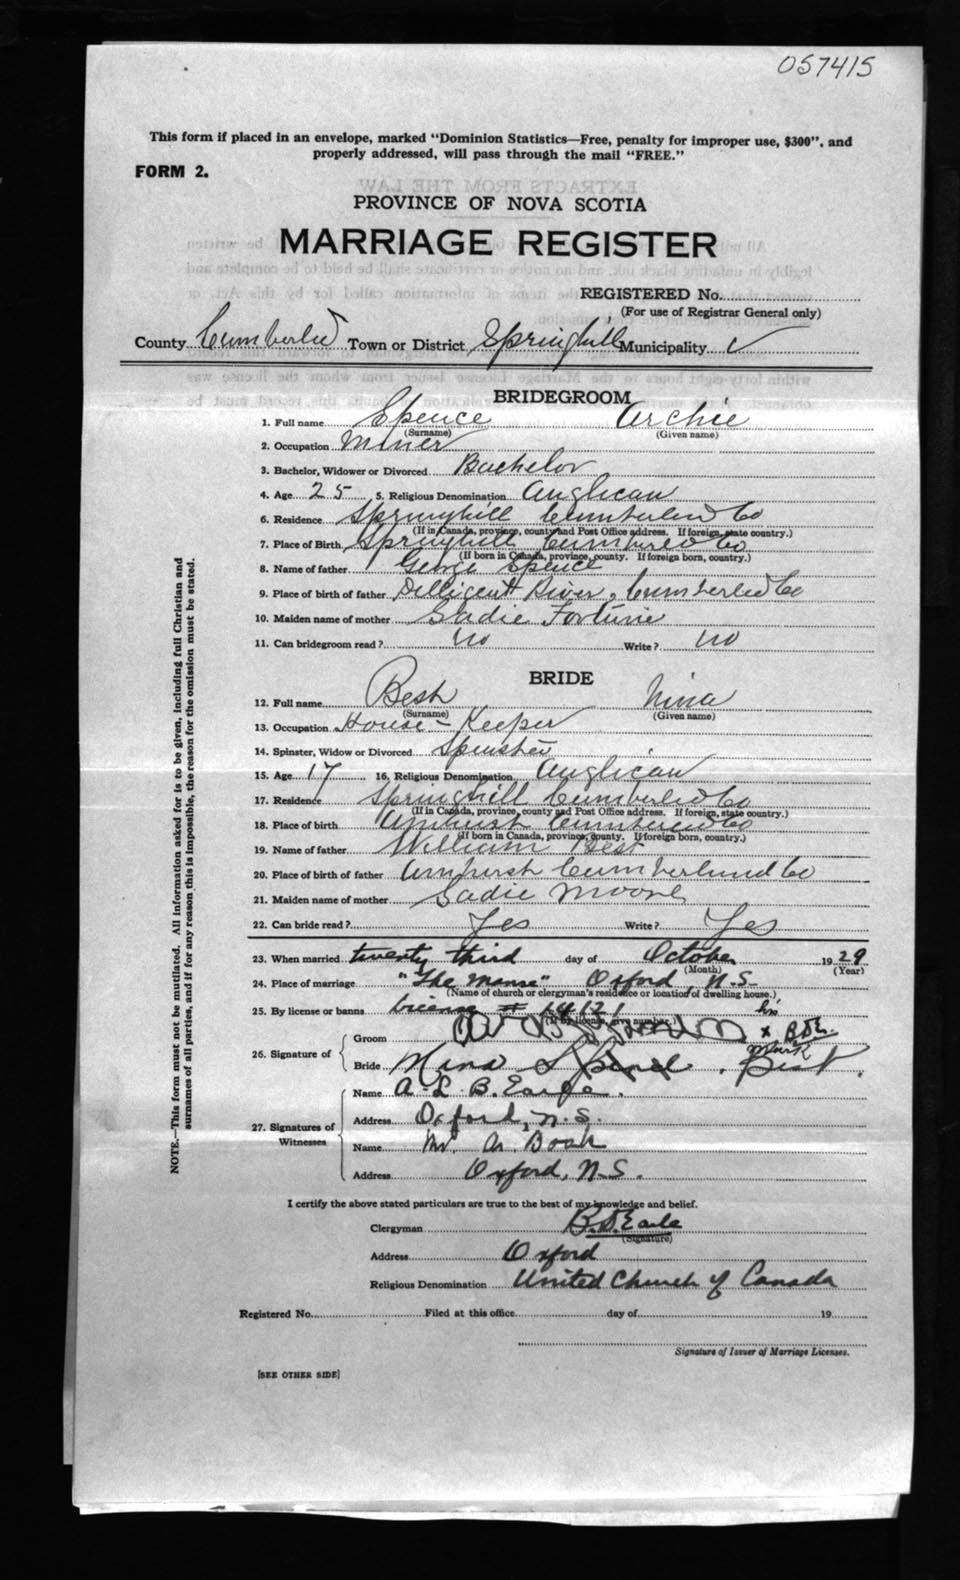 057415
This form if placed in an envelope, marked "Dominion Statistics—Free, penalty for improper use, $300", and
properly addressed, will pass through the mail "FREE."
FORM 2.
PROVINCE OF NOVA SCOTIA
MARRIAGE REGISTER
REGISTERED No.
(For use of Registrar General only)
County Cumberled Town or District Springhill Municipality
BRIDEGROOM
1. Full name Spence Archie
(Surname) (Given name)
2. Occupation Miner
3. Bachelor, Widower or Divorced Bachelor
4. Age 25 5. Religious Denomination Anglican
6. Residence Springhill Cumberled Co
(If in Canada, province, county and Post Office address. If foreign, state country.)
7. Place of Birth Springhill Cumberled Co
(If born in Canada, province, county. If foreign born, country.)
8. Name of father George Spence
9. Place of birth of father Dilligent River, Cumberled Co
10. Maiden name of mother Sadie Fortune
11. Can bridegroom read? no Write? no
BRIDE
12. Full name Best Nina
(Surname) (Given name)
13. Occupation House-Keeper
14. Spinster, Widow or Divorced Spinster
15. Age 17 16. Religious Denomination Anglican
17. Residence Springhill Cumberled Co
(If in Canada, province, county and Post Office address. If foreign, state country.)
18. Place of birth Amherst Cumberled Co
(If born in Canada, province, county. If foreign born, country.)
19. Name of father William Best
20. Place of birth of father Amherst Cumberlund Co
21. Maiden name of mother Sadie Moore
22. Can bride read? Yes Write? Yes
23. When married twenty third day of October 1929
(Month) (Year)
24. Place of marriage "The Manse" Oxford, N.S.
(Name of church or clergyman's residence or location of dwelling house.)
25. By license or banns license #
(If by license, give number)
his
26. Signature of
Groom x B.D.E.
mark
Bride Nina Best.
27. Signatures of Witnesses
Name A. L. B. Earle.
Address Oxford, N.S.
Name
Address Oxford, N.S.
I certify the above stated particulars are true to the best of my knowledge and belief.
Clergyman B.D. Earle
(Signature)
Address Oxford
Religious Denomination United Church of Canada
Registered No. Filed at this office day of 19
Signature of Issuer of Marriage Licenses.
[SEE OTHER SIDE]
NOTE.—This form must not be mutilated. All information asked for is to be given, including full Christian and
surnames of all parties, and if for any reason this is impossible, the reason for the omission must be stated.